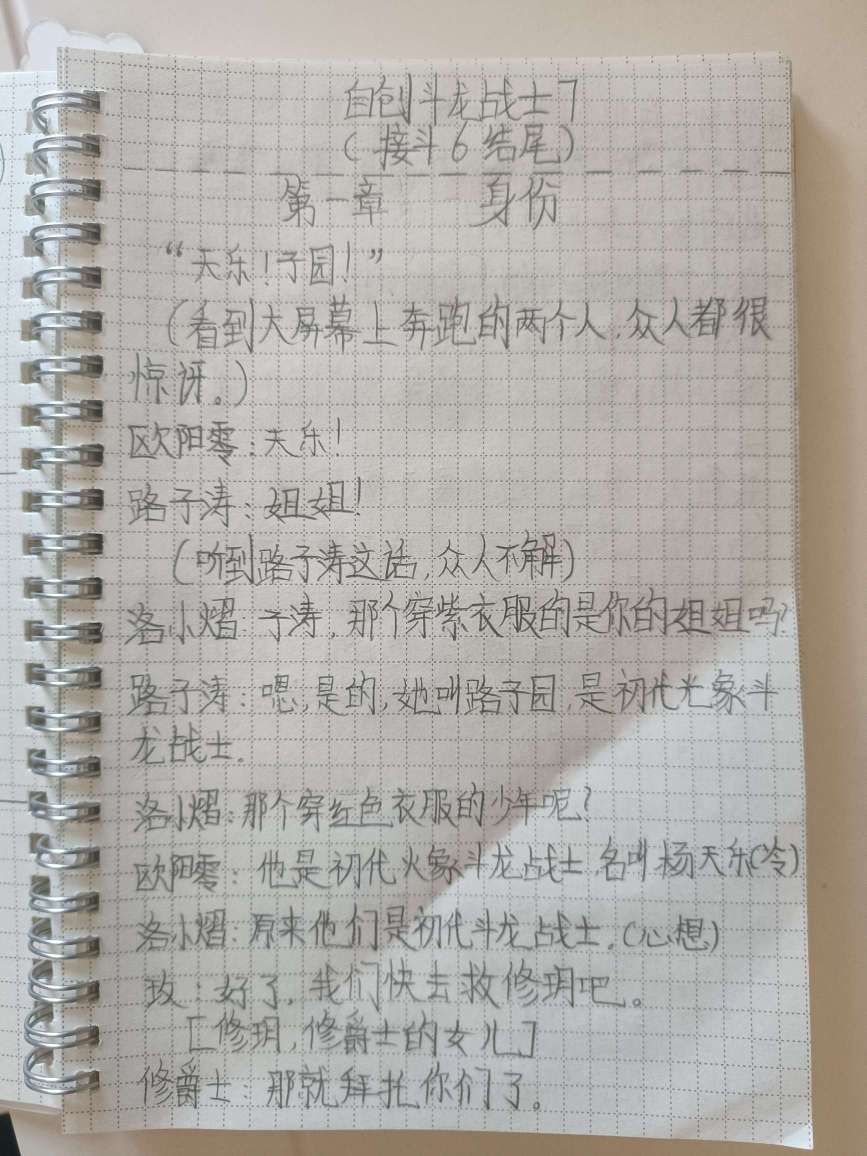 自创斗龙战士7
(接斗6结尾)
第一章 身份
“天乐!子园!”
(看到大屏幕上奔跑的两个人,众人都很
惊讶。)
欧阳零:天乐!
路子涛:姐姐!
(听到路子涛这话,众人不解)
洛小熠:子涛,那个穿紫衣服的是你的姐姐吗?
路子涛:嗯,是的,她叫路子园,是初代光象斗
龙战士.
洛小熠:那个穿红色衣服的少年呢?
欧阳零:他是初代火象斗龙战士,名叫杨天乐(冷)
洛小熠:原来他们是初代斗龙战士.(心想)
玫:好了,我们快去救修玥吧。
[修玥,修爵士的女儿]
修爵士:那就拜托你们了。